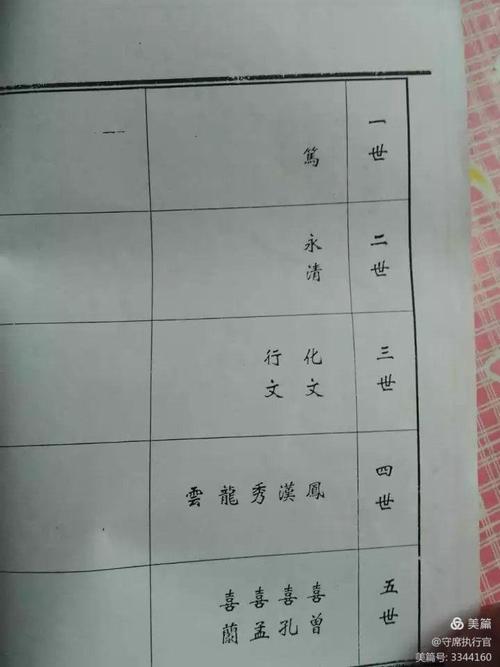 一世
篤
一
二世
永清
三世
化文
行文
四世
鳳
漢
秀
龍
雲
五世
喜曾
喜孔
喜孟
喜蘭
美篇
@守席执行官
美篇号: 3344160